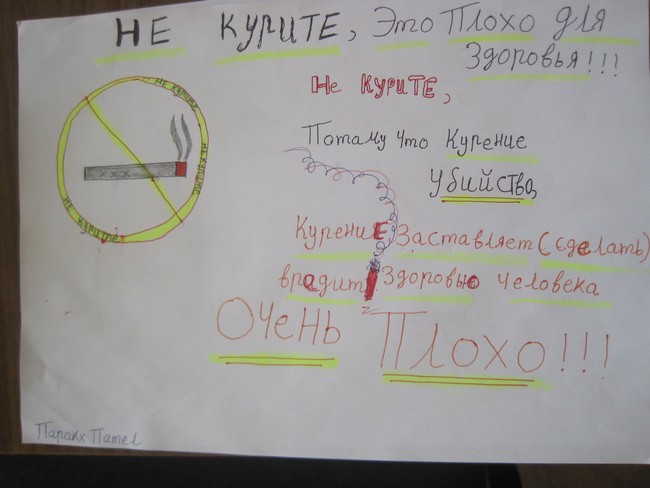 НЕ КУРИТЕ, Это Плохо для
Здоровья!!!
Не КУРИТЕ,
Потаму что Курение
Убийства,
КурениЕ Заставляет (сделать)
врадит Здоровью Человека
ОЧЕНЬ ПЛОХО!!!
НЕ КУРИТЕ
НЕ КУРИТЕ
НЕ КУРИТЕ
xxx
Паракх Пател